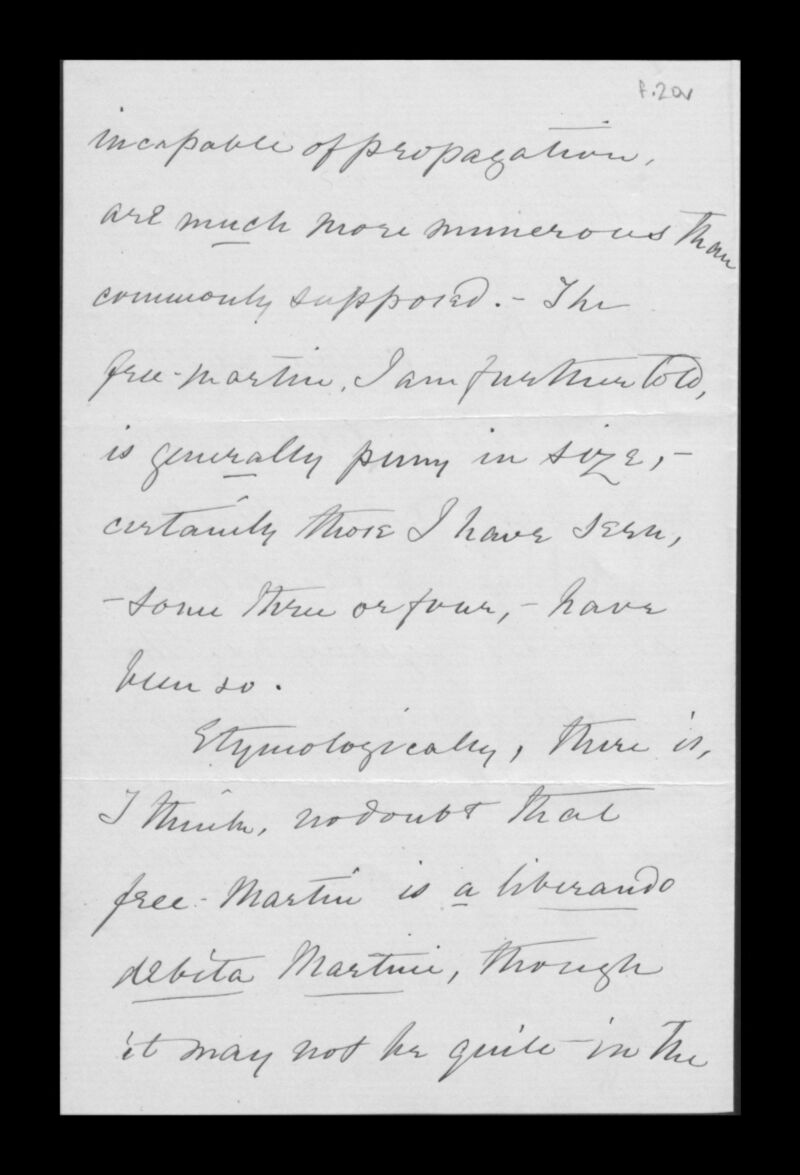 f.20v
incapable of propagation,
are much more numerous than
commonly supposed. - The
free-martin, I am further told,
is generally puny in size, -
certainly those I have seen,
- some three or four, - have
been so.
Etymologically, there is,
I think, no doubt that
free-Martin is a liberando
debita Martini, though
it may not be quite in the